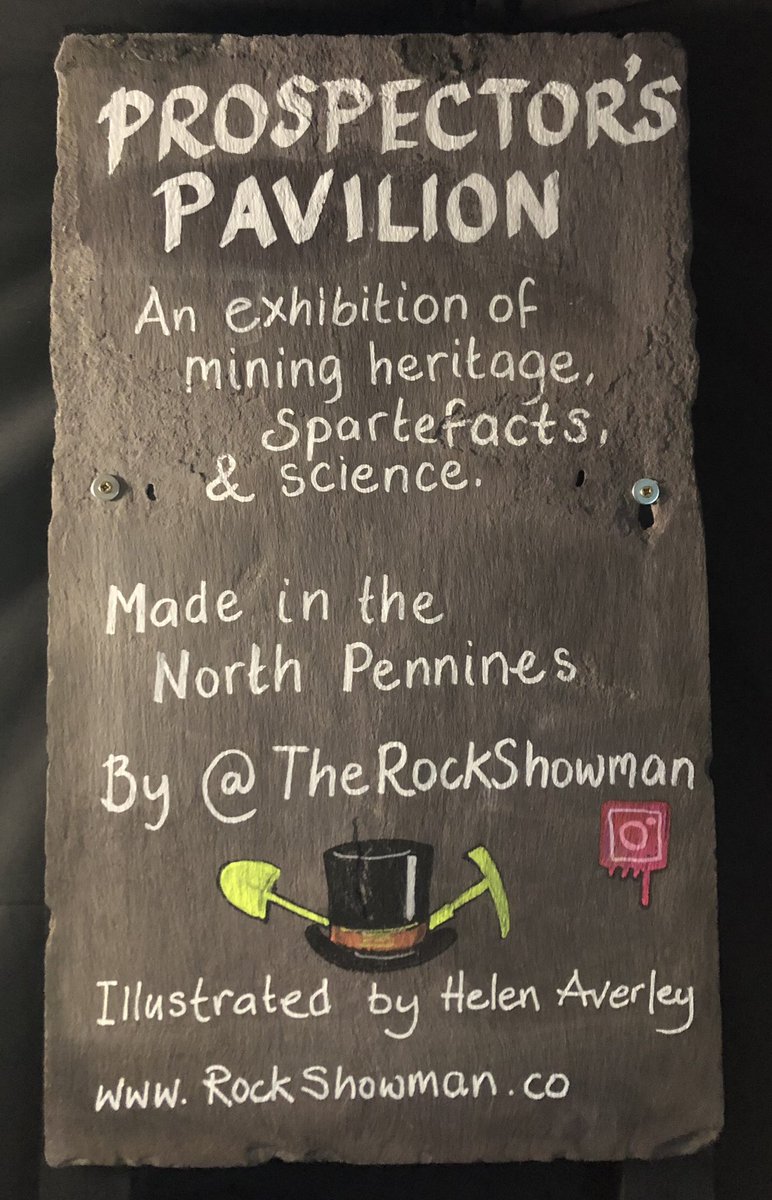 PROSPECTOR'S
PAVILION
An exhibition of
mining heritage,
Spartefacts,
& science.
Made in the
North Pennines
By @TheRockShowman
Illustrated by Helen Averley
www.RockShowman.co